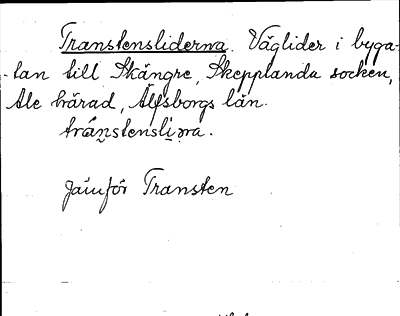 Transtensliderna. Väglider i byga-
tan till Skängre, Skepplanda socken,
Ale härad, Älfsborgs län.
Jämför Transten